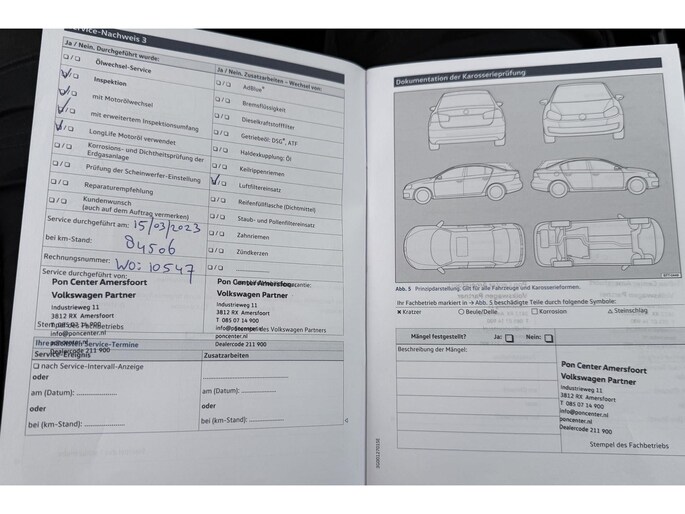 Service-Nachweis 3
Ja / Nein. Durchgeführt wurde:
Ölwechsel-Service
Inspektion
mit Motorölwechsel
mit erweitertem Inspektionsumfang
LongLife Motoröl verwendet
Korrosions- und Dichtheitsprüfung der
Erdgasanlage
Prüfung der Scheinwerfer-Einstellung
Reparaturempfehlung
Kundenwunsch
(auch auf dem Auftrag vermerken)
Service durchgeführt am: 15/03/2023
bei km-Stand: 84506
Rechnungsnummer: WO: 10547
Service durchgeführt von:
Pon Center Amersfoort
Volkswagen Partner
Industrieweg 11
3812 RX Amersfoort
T 085 07 14 900
info@poncenter.nl
poncenter.nl
Dealercode 211 900
Ja / Nein. Zusatzarbeiten – Wechsel von:
AdBlue®
Bremsflüssigkeit
Dieselkraftstofffilter
Getriebeöl: DSG®, ATF
Haldexkupplung: Öl
Keilrippenriemen
Luftfiltereinsatz
Reifenfüllflasche (Dichtmittel)
Staub- und Pollenfiltereinsatz
Zahnriemen
Zündkerzen
Pon Center Amersfoort
Volkswagen Partner
Industrieweg 11
3812 RX Amersfoort
T 085 07 14 900
info@poncenter.nl
poncenter.nl
Dealercode 211 900
Stempel des Volkswagen Partners
Ihre nächsten Service-Termine
Service-Ereignis
Zusatzarbeiten
nach Service-Intervall-Anzeige
oder
am (Datum):
oder
bei (km-Stand):
am (Datum):
oder
bei (km-Stand):
Dokumentation der Karosserieprüfung
Abb. 5 Prinzipdarstellung. Gilt für alle Fahrzeuge und Karosserieformen.
Ihr Fachbetrieb markiert in → Abb. 5 beschädigte Teile durch folgende Symbole:
× Kratzer ○ Beule/Delle □ Korrosion △ Steinschlag
Mängel festgestellt? Ja: Nein:
Beschreibung der Mängel:
Pon Center Amersfoort
Volkswagen Partner
Industrieweg 11
3812 RX Amersfoort
T 085 07 14 900
info@poncenter.nl
poncenter.nl
Dealercode 211 900
Stempel des Fachbetriebs